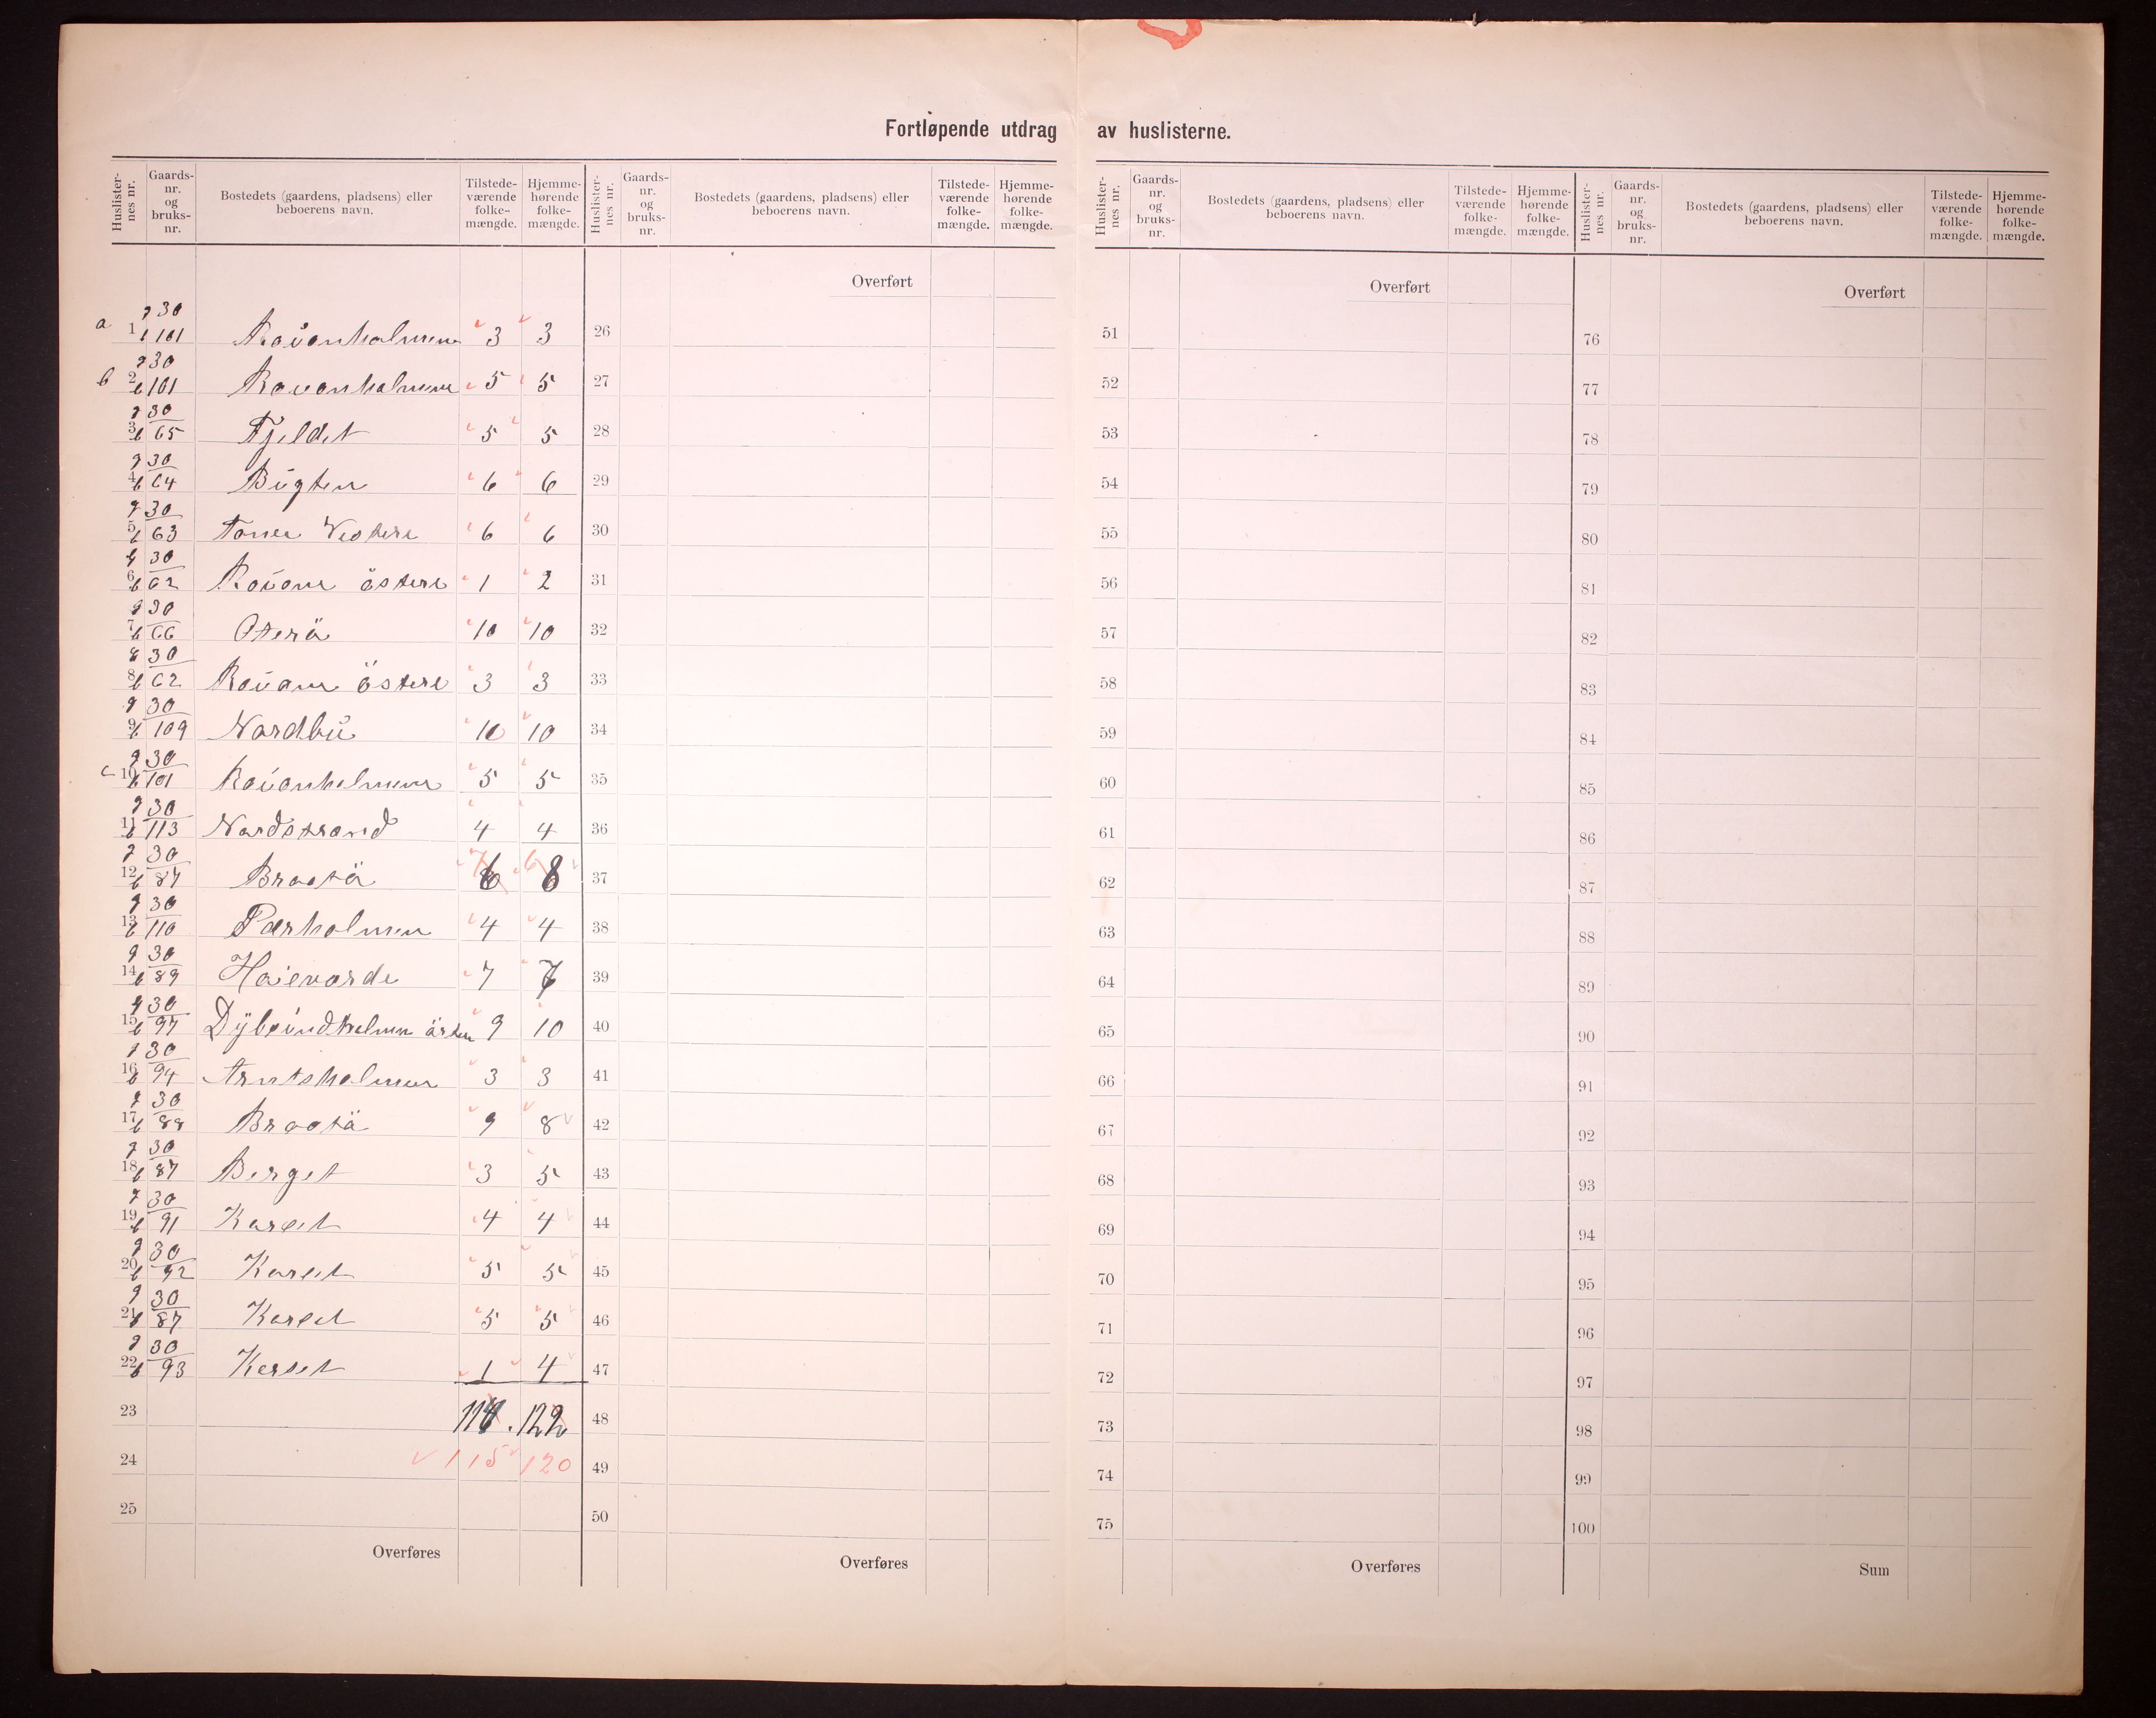 Fortløpende utdrag av huslisterne.
Huslister-nes nr. Gaards-nr. og bruks-nr. Bostedets (gaardens, pladsens) eller beboerens navn. Tilstede-værende folke-mængde. Hjemme-hørende folke-mængde.
Huslister-nes nr. Gaards-nr. og bruks-nr. Bostedets (gaardens, pladsens) eller beboerens navn. Tilstede-værende folke-mængde. Hjemme-hørende folke-mængde.
Huslister-nes nr. Gaards-nr. og bruks-nr. Bostedets (gaardens, pladsens) eller beboerens navn. Tilstede-værende folke-mængde. Hjemme-hørende folke-mængde.
Huslister-nes nr. Gaards-nr. og bruks-nr. Bostedets (gaardens, pladsens) eller beboerens navn. Tilstede-værende folke-mængde. Hjemme-hørende folke-mængde.
a 1 g 30 b 101 3 3
b 2 g 30 b 101 5 5
3 g 30 b 65 Fjeldet 5 5
4 g 30 b 64 Bugten 6 6
5 g 30 b 63 Vestere 6 6
6 g 30 b 62 östere 1 2
7 g 30 b 66 Oterö 10 10
8 g 30 b 62 östere 3 3
9 g 30 b 109 Nordbu 10 10
c 10 g 30 b 101 5 5
11 g 30 b 113 Nordstrand 4 4
12 g 30 b 87 Braatö 7 6 8
13 g 30 b 110 Perholmen 4 4
14 g 30 b 89 Haievarde 7 7
15 g 30 b 97 Dybsundholmen östre 9 10
16 g 30 b 94 Arntsholmen 3 3
17 g 30 b 88 Braatö 9 8
18 g 30 b 87 Berget 3 5
19 g 30 b 91 Karset 4 4
20 g 30 b 92 Karset 5 5
21 g 30 b 87 Karset 5 5
22 g 30 b 93 Karset 1 4
23 122
24 115 120
25
Overføres
Overført
26
27
28
29
30
31
32
33
34
35
36
37
38
39
40
41
42
43
44
45
46
47
48
49
50
Overføres
Overført
51
52
53
54
55
56
57
58
59
60
61
62
63
64
65
66
67
68
69
70
71
72
73
74
75
Overføres
Overført
76
77
78
79
80
81
82
83
84
85
86
87
88
89
90
91
92
93
94
95
96
97
98
99
100
Sum